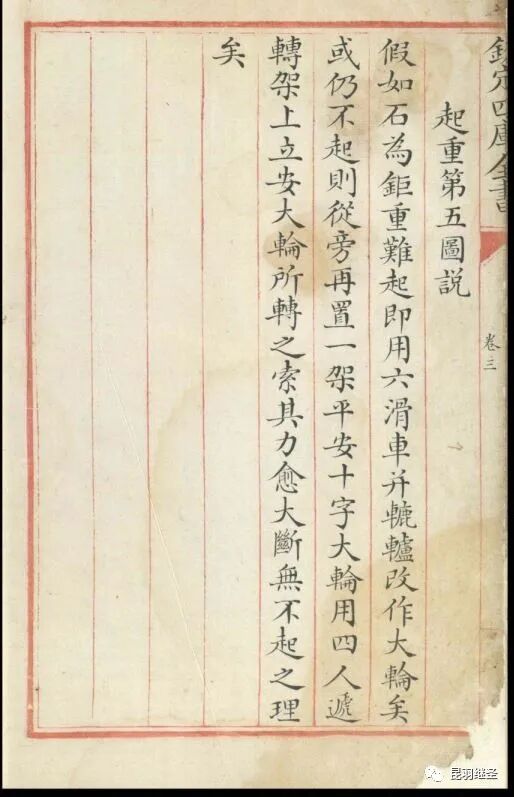 欽定四庫全書
卷三
起重第五圖説
假如石為鉅重難起即用六滑車并轆轤改作大輪矣
或仍不起則從旁再置一架平安十字大輪用四人遞
轉架上立安大輪所轉之索其力愈大斷無不起之理
矣
昆羽继圣